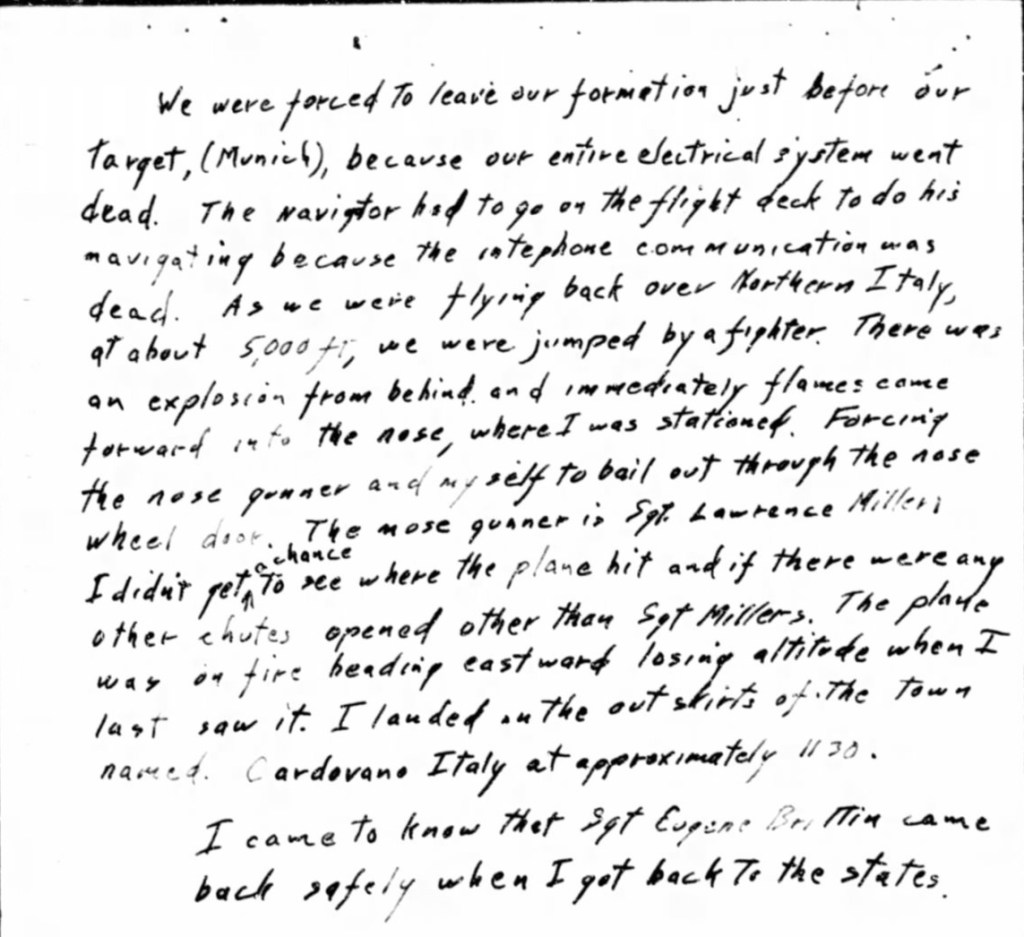 We were forced to leave our formation just before our
target, (Munich), because our entire electrical system went
dead. The navigator had to go on the flight deck to do his
navigating because the intephone communication was
dead. As we were flying back over Northern Italy,
at about 5,000 ft, we were jumped by a fighter. There was
an explosion from behind and immediately flames came
forward into the nose, where I was stationed. Forcing
the nose gunner and myself to bail out through the nose
wheel door. The nose gunner is Sgt. Lawrence Millers
a chance
I didn't get to see where the plane hit and if there were any
other chutes opened other than Sgt Millers. The plane
was on fire heading eastward losing altitude when I
last saw it. I landed on the outskirts of the town
named. Cardovano Italy at approximately 1130.
I came to know that Sgt Eugene Brittin came
back safely when I got back to the states.